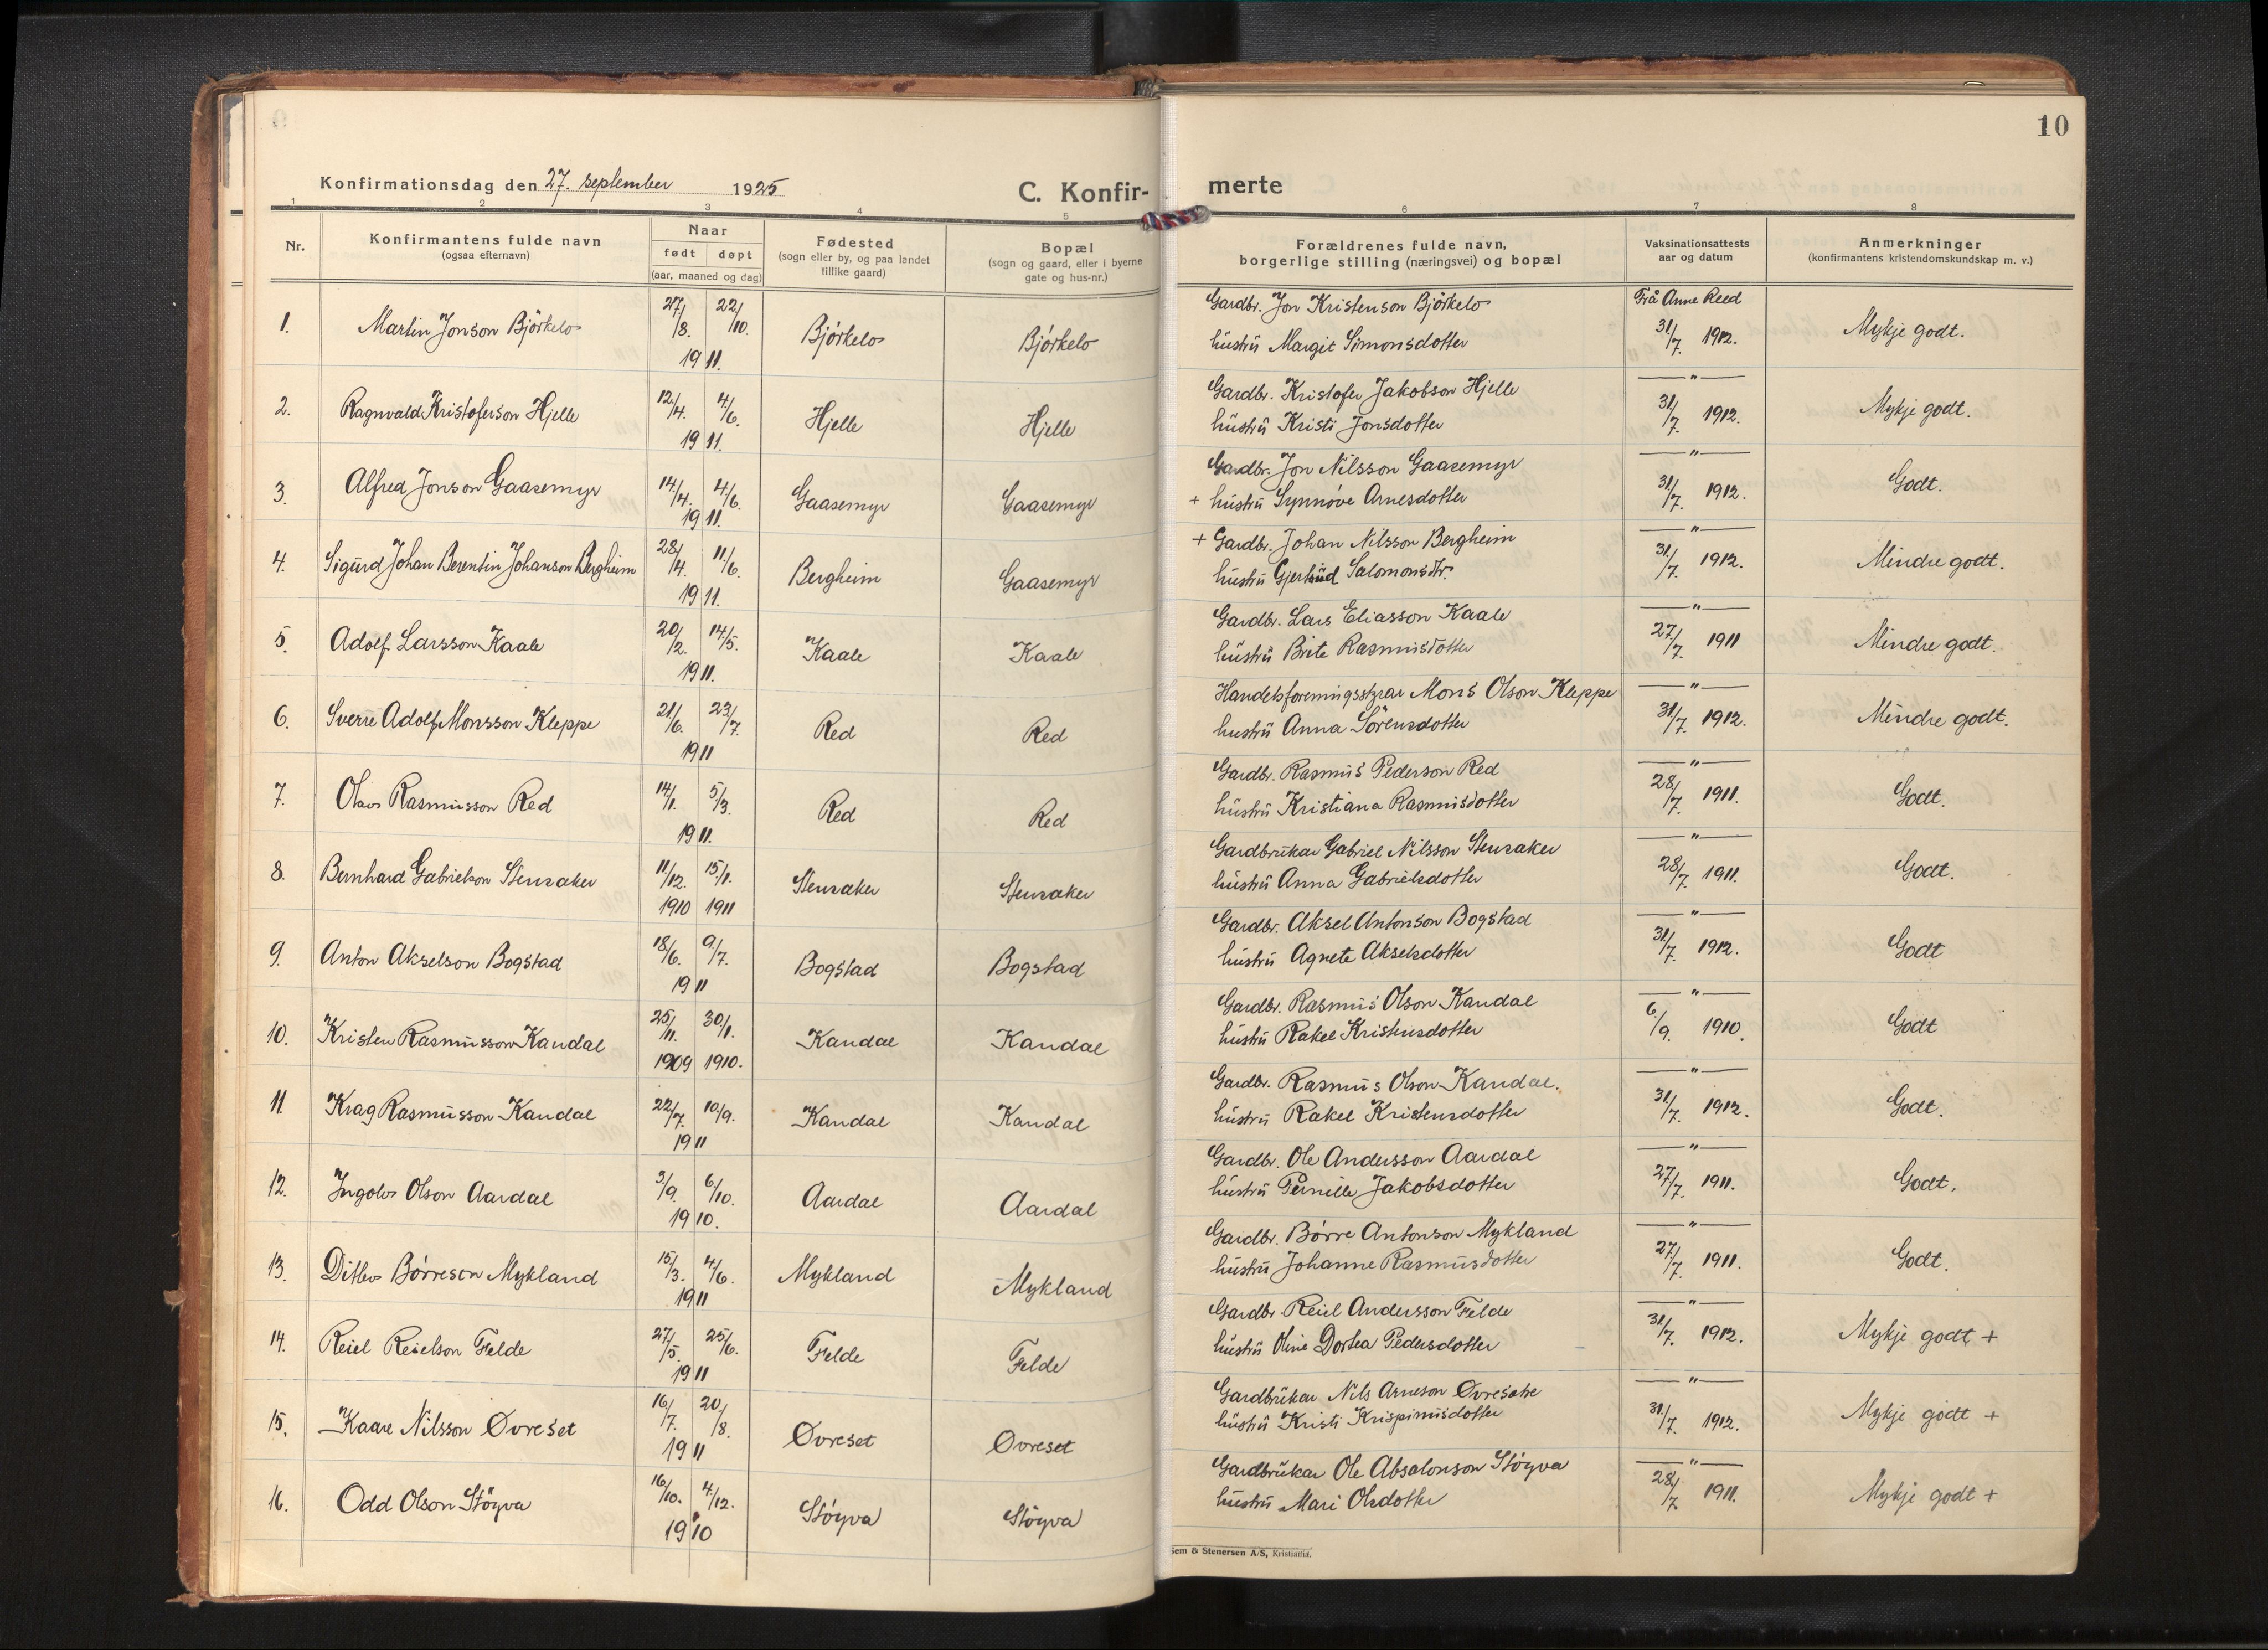 10
Konfirmationsdag den 27. september 1925
C. Konfir-
merte
1 2 3 4 5 6 7 8
Nr.
Konfirmantens fulde navn
(ogsaa efternavn)
Naar
født døpt
(aar, maaned og dag)
Fødested
(sogn eller by, og paa landet
tillike gaard)
Bopæl
(sogn og gaard, eller i byerne
gate og hus-nr.)
Forældrenes fulde navn,
borgerlige stilling (næringsvei) og bopæl
Vaksinationsattests
aar og datum
Anmerkninger
(konfirmantens kristendomskundskap m. v.)
1. Martin Jonson Björkelo 27/8. 22/10. 1911. Björkelo Björkelo
Gardbr. Jon Kristenson Björkelo
hustru Margit Simonsdotter
Frå Anne Reed
31/7. 1912. Mykje godt.
2. Ragnvald Kristoferson Hjelle 12/4. 4/6. 1911. Hjelle Hjelle
Gardbr. Kristofer Jakobson Hjelle
hustru Kristi Jonsdotter
— " —
31/7. 1912. Mykje godt.
3. Alfred Jonson Gaasemyr 14/4. 4/6. 1911. Gaasemyr Gaasemyr
Gardbr. Jon Nilsson Gaasemyr
+ hustru Synnöve Arnesdotter
— " —
31/7. 1912. Godt.
4. Sigurd Johan Berentin Johanson Bergheim 28/4. 11/6. 1911. Bergheim Gaasemyr
+ Gardbr. Johan Nilsson Bergheim
hustru Gjertrud Salomonsdtr.
— " —
31/7. 1912. Mindre godt.
5. Adolf Larsson Kaale 20/2. 14/5. 1911. Kaale Kaale
Gardbr. Lars Eliasson Kaale
hustru Brite Rasmusdotter
— " —
27/7. 1911 Mindre godt.
6. Sverre Adolf Monsson Kleppe 21/6. 23/7. 1911 Red Red
Handelsforeningsstyrar Mons Olson Kleppe
hustru Anna Sörensdotter
— " —
31/7. 1912. Mindre godt.
7. Olav Rasmusson Red 14/1. 5/3. 1911. Red Red
Gardbr. Rasmus Pederson Red
hustru Kristiana Rasmusdotter
— " —
28/7. 1911. Godt.
8. Bernhard Gabrielson Stensaker 11/12. 15/1. 1910 1911 Stensaker Stensaker
Gardbrukar Gabriel Nilsson Stensaker
hustru Anna Gabrielsdotter
— " —
28/7. 1911. Godt.
9. Anton Akselson Bogstad 18/6. 9/7. 1911 Bogstad Bogstad
Gardbr. Aksel Antonson Bogstad
hustru Agnete Akselsdotter
— " —
31/7. 1912. Godt
10. Kristen Rasmusson Kandal 25/11. 30/1. 1909 1910. Kandal Kandal
Gardbr. Rasmus Olson Kandal
hustru Rakel Kristensdotter
— " —
6./9. 1910. Godt
11. Krag Rasmusson Kandal 22/7. 10/9. 1911 Kandal Kandal
Gardbr. Rasmus Olson Kandal.
hustru Rakel Kristensdotter
— " —
31/7. 1912. Godt.
12. Ingolv Olson Aardal 3/9. 6/10. 1910. Aardal Aardal
Gardbr. Ole Andersson Aardal
hustru Pernille Jakobsdotter
— " —
27/7. 1911. Godt.
13. Ditlev Börreson Mykland 15/3. 4/6. 1911 Mykland Mykland
Gardbr. Börre Antonson Mykland
hustru Johanne Rasmusdotter
— " —
27/7. 1911. Godt.
14. Reiel Reielson Felde 27/5. 25/6. 1911 Felde Felde
Gardbr Reiel Andersson Felde
hustru Oline Dortea Pedersdotter
— " —
31/7. 1912. Mykje godt +
15. Kaare Nilsson Øvreset 16/7. 20/8. 1911 Øvreset Øvreset
Gardbrukar Nils Arneson Øvresete
hustru Kristi Krispinusdotter
— " —
31/7. 1912. Mykje godt +
16. Odd Olson Stöyva 16/10. 4/12. 1910 Stöyva Stöyva
Gardbrukar Ole Absalonson Stöyva
hustru Mari Olsdotter
— " —
28/7. 1911. Mykje godt +
Sem & Stenersen A/S, Kristiania.